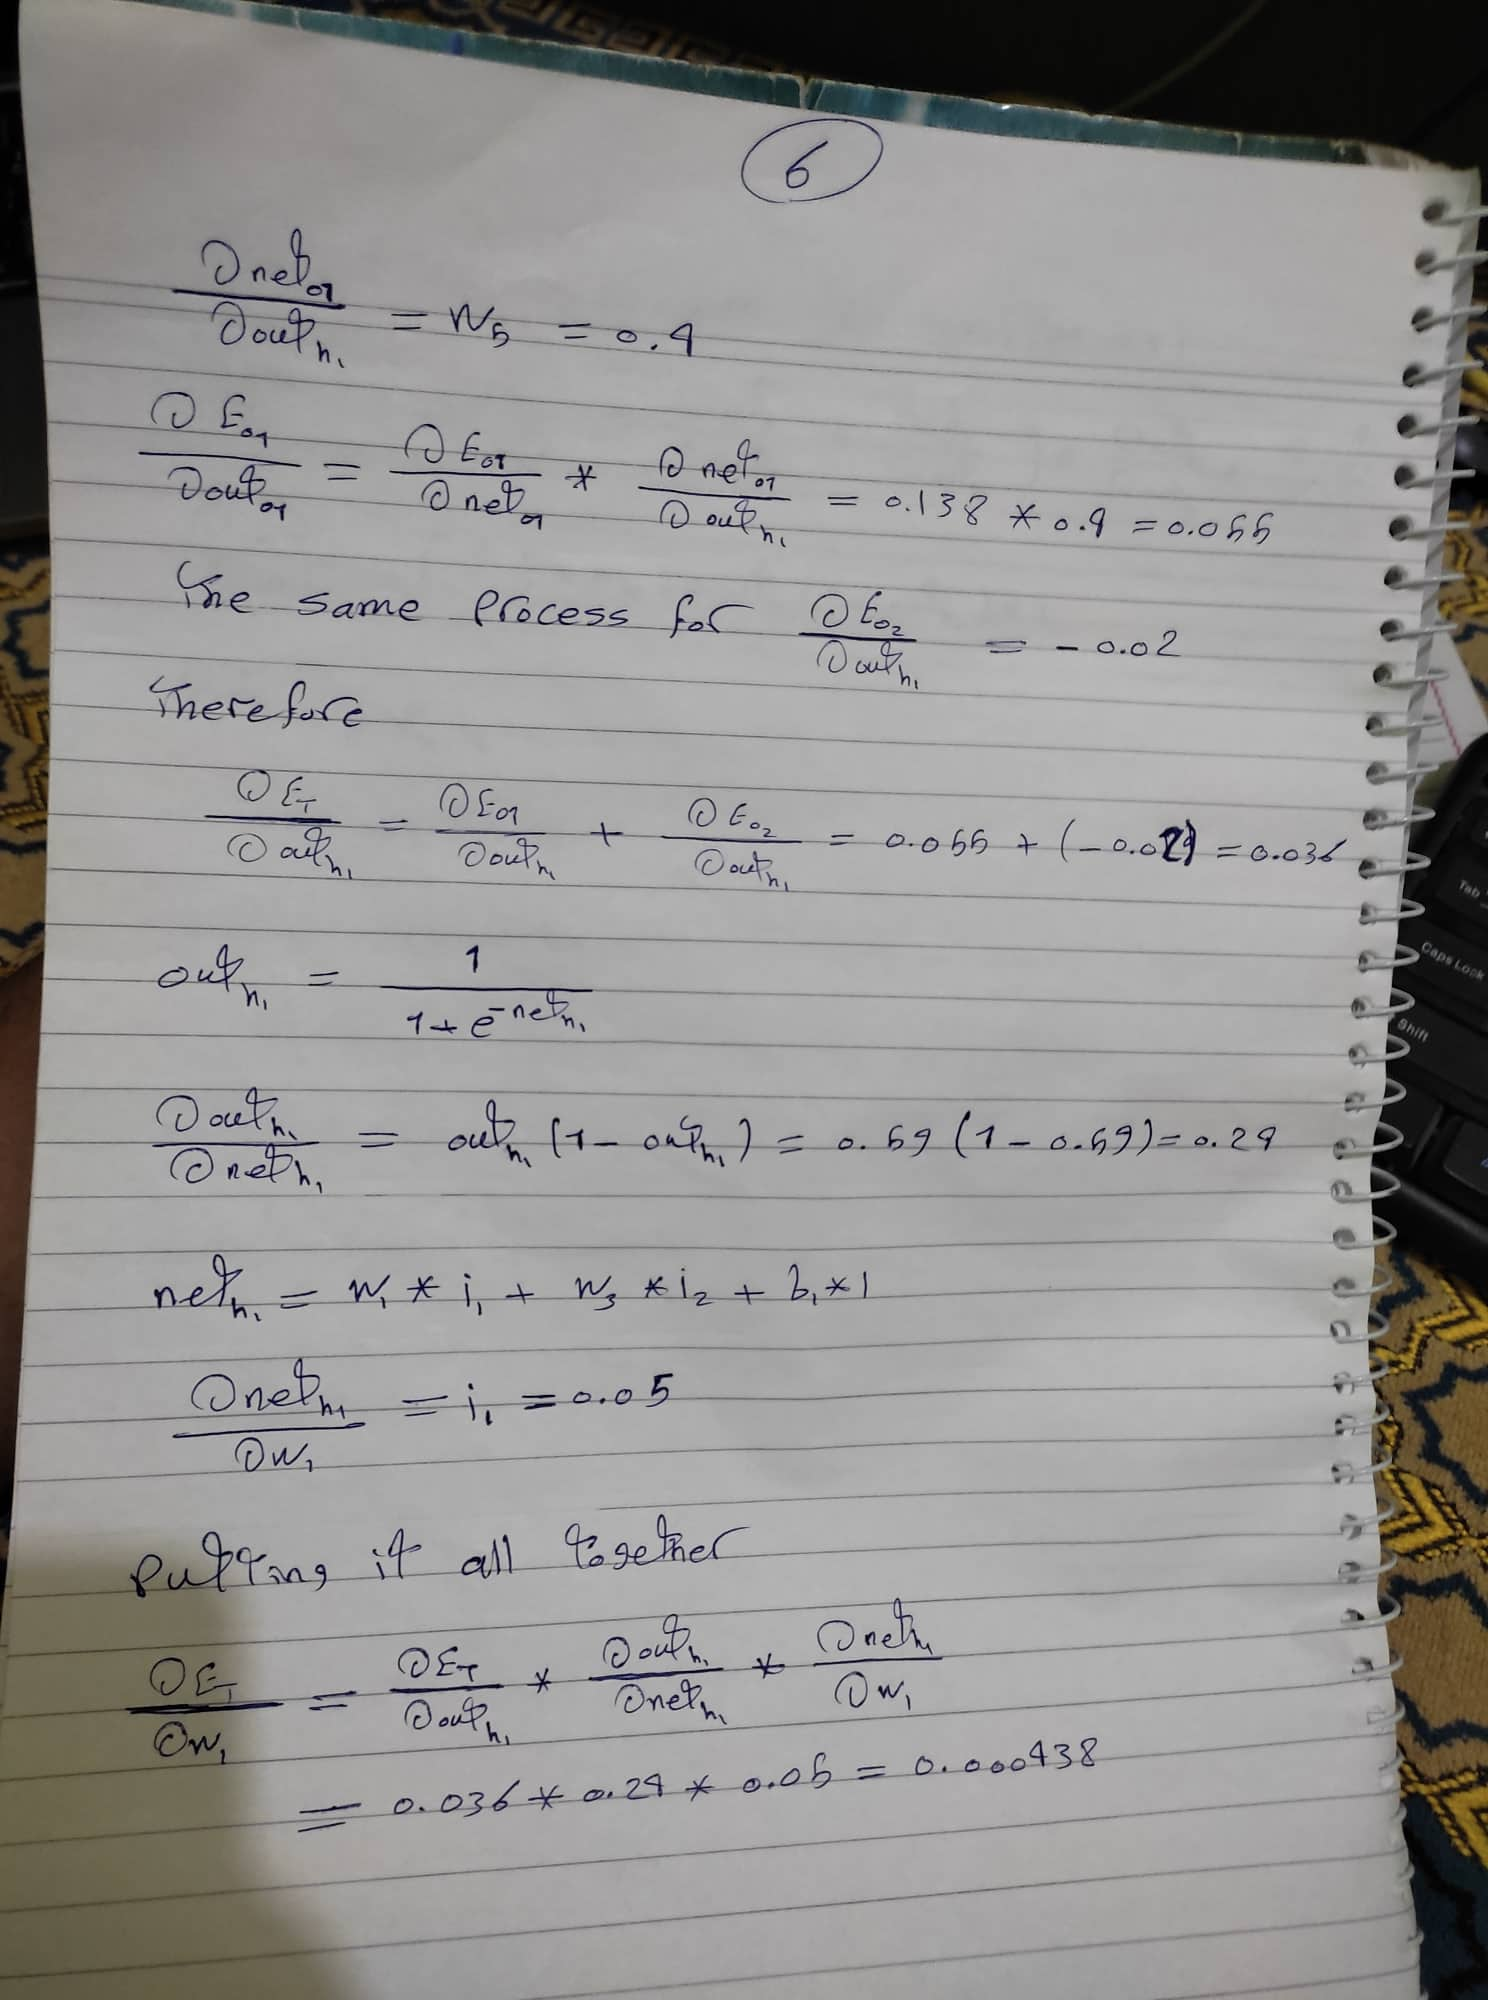 6
∂net_o1 / ∂out_h1 = w5 = 0.4
∂E_o1 / ∂out_o1 = ∂E_o1 / ∂net_o1 * ∂net_o1 / ∂out_h1 = 0.138 * 0.4 = 0.055
The same process for ∂E_o2 / ∂out_h1 = - 0.02
Therefore
∂E_T / ∂out_h1 = ∂E_o1 / ∂out_h1 + ∂E_o2 / ∂out_h1 = 0.055 + (-0.02) = 0.036
out_h1 = 1 / 1 + e^-net_h1
∂out_h1 / ∂net_h1 = out_h1 (1 - out_h1) = 0.59 (1 - 0.59) = 0.24
net_h1 = w1 * i1 + w3 * i2 + b1 * 1
∂net_h1 / ∂w1 = i1 = 0.05
Putting it all together
∂E_T / ∂w1 = ∂E_T / ∂out_h1 * ∂out_h1 / ∂net_h1 * ∂net_h1 / ∂w1
= 0.036 * 0.24 * 0.05 = 0.000438
Tab
Caps Lock
Shift